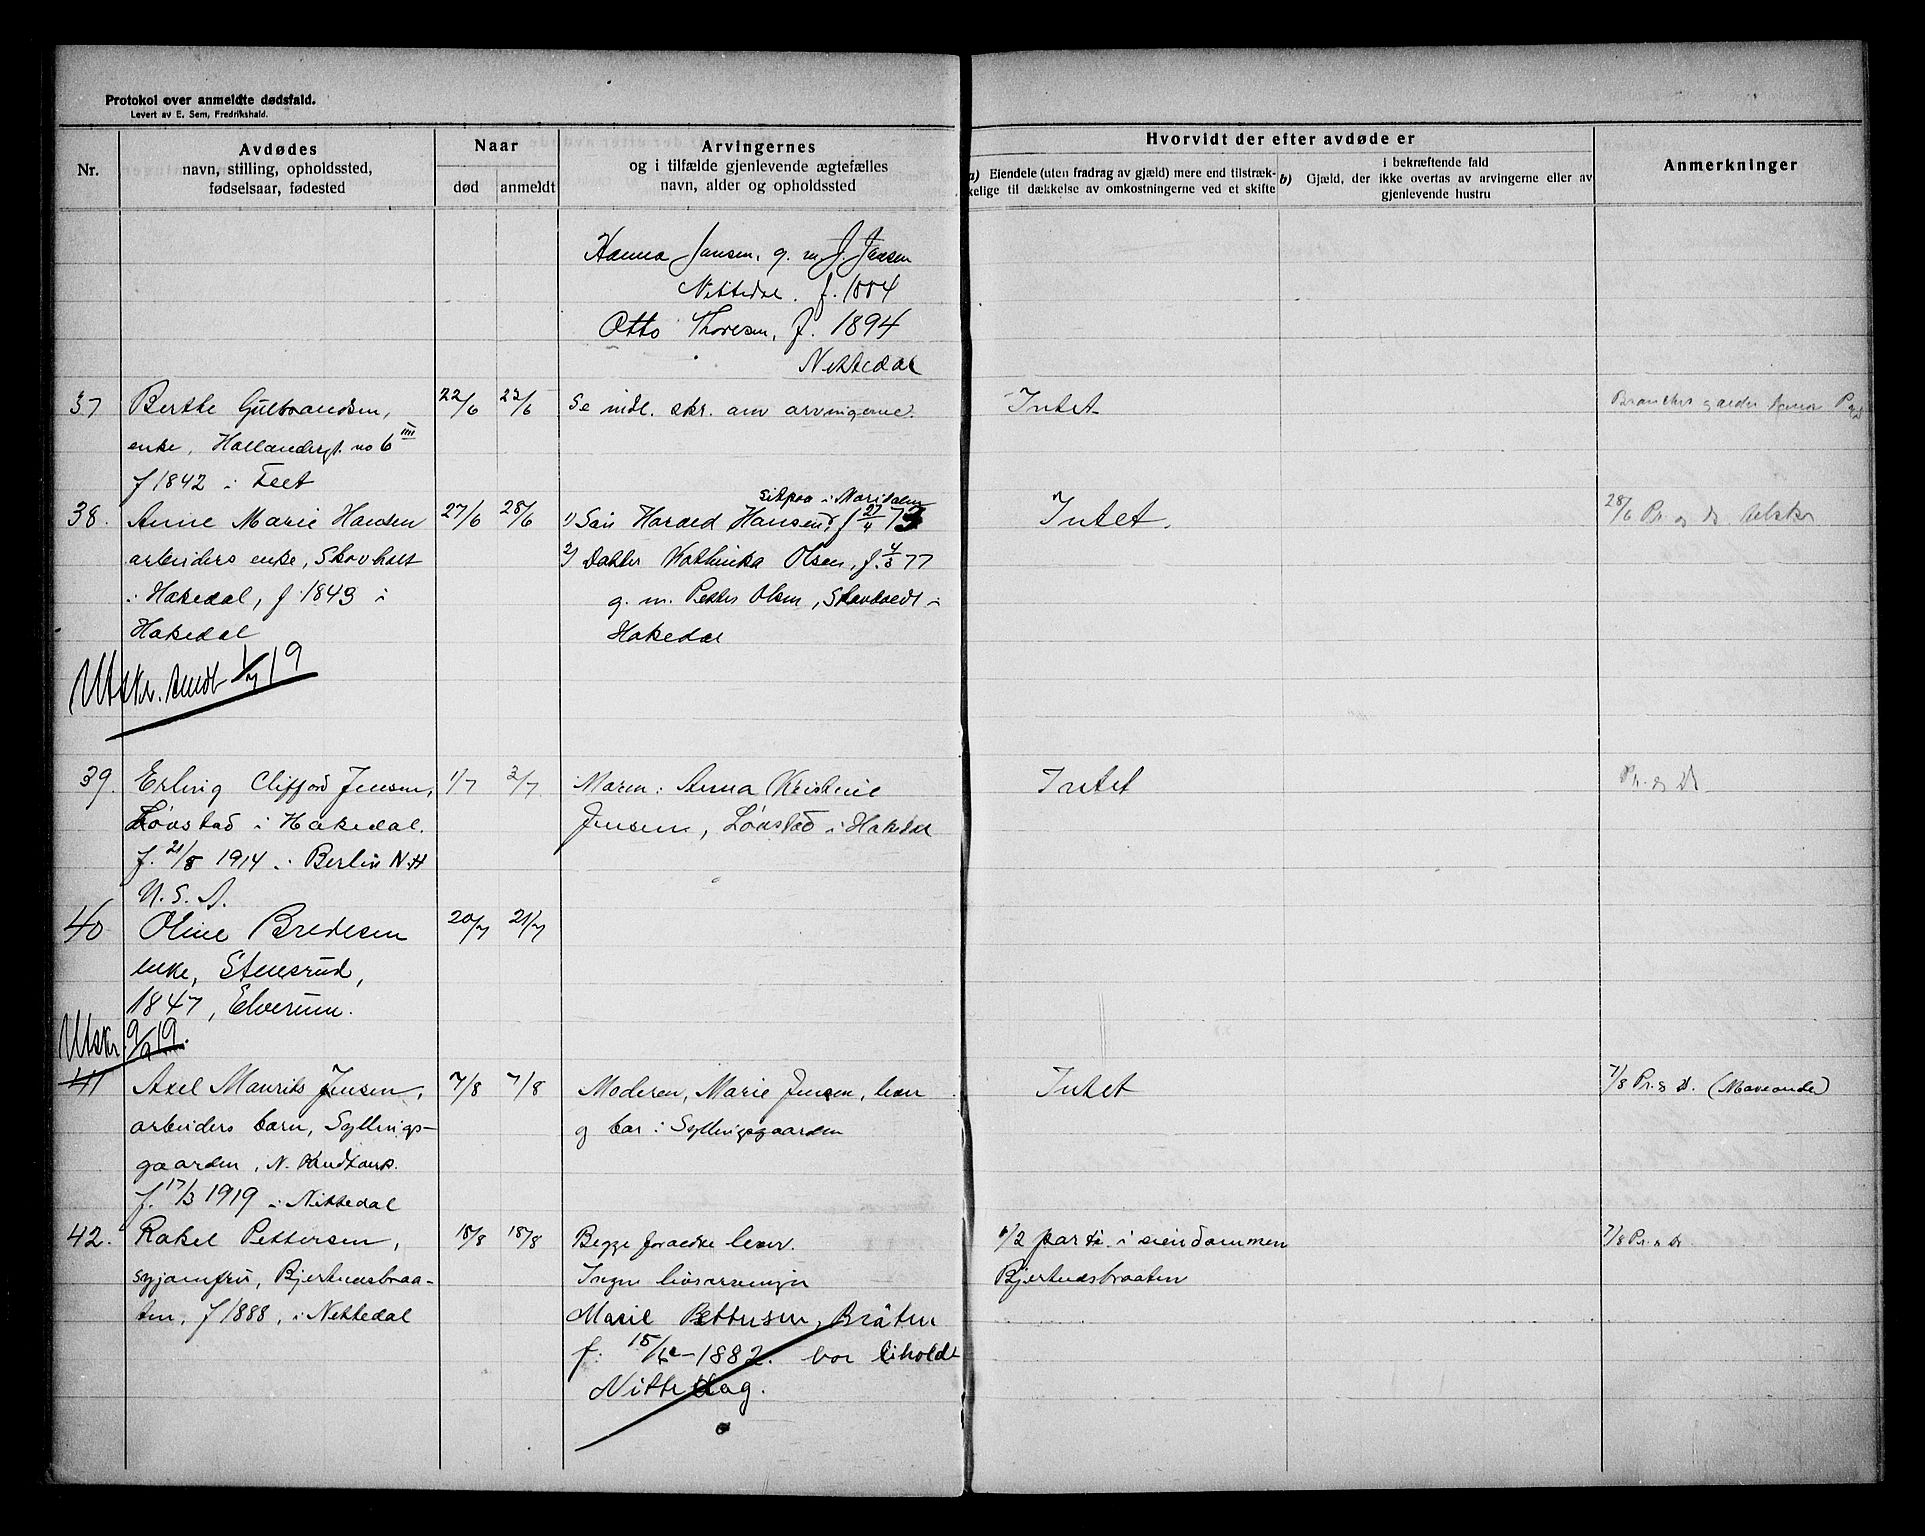 Protokol over anmeldte dødsfald.
Levert av E. Sem, Fredrikshald.
Nr.
Avdødes
navn, stilling, opholdssted,
fødselsaar, fødested
Naar
død
anmeldt
Arvingernes
og i tilfælde gjenlevende ægtefælles
navn, alder og opholdssted
Hvorvidt der efter avdøde er
a) Eiendele (uten fradrag av gjæld) mere end tilstræk-
kelige til dækkelse av omkostningerne ved et skifte
i bekræftende fald
b) Gjæld, der ikke overtas av arvingerne eller av
gjenlevende hustru
Anmerkninger
Hanna Jansen, g. m. J. Jansen
Nittedal. f. 1884
Otto Thoresen, f. 1894
Nittedal
37 Berthe Gulbrandsen,
enke, no 6
f 1842 i Feet
22/6 23/6
Se indl. skr. om arvingerne
Intet
38. Anne Marie Hansen
arbeiders enke, Skovholt
i Hakedal, f. 1843 i
Hakedal
27/6 28/6
i Maridalen
1) Søn Harald Hansen, f 27/11 73
2) Datter Kathinka Olsen, f. 4/3 77
g. m. Petter Olsen, Skovholt i
Hakedal
Intet.
28/6 Pr. og D.
Utskr. sendt 1/7 19
39. Erling Clifford Jensen,
Løvstad i Hakedal.
f. 21/8 1914 i Berlin N.H
U.S.A.
1/7 2/7
Moren: Anna Kristine
Jensen, Løvstad i Hakedal
Intet
Pr. og D
40 Oline Bredesen
enke, Stensrud,
1847, Elverum.
20/7 21/7
Utskr. 9/9 19.
41 Axel Maurits Jensen,
arbeiders barn, Syllings-
gaarden, N.
f. 17/3 1919 i Nittedal
7/8 7/8
Moderen, Marie Jensen, lever
og bor i Syllingsgaarden
Intet
7/8 Pr. og D.
42. Rakel Pettersen,
syjomfru, Bjertnesbraa-
ten, f 1888, i Nittedal
18/8 18/8
Begge foraeldre lever.
Ingen livsarvinger
Marie Pettersen, Bråten
f. 15/12-1882. bor
Nittedag.
1/2 part i eiendommen
Bjertnesbraaten
Pr. D